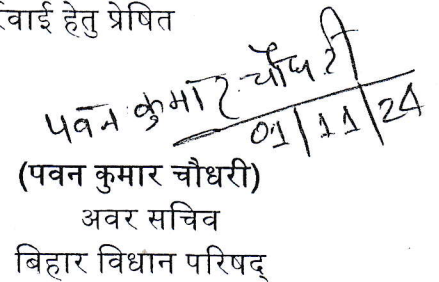 र्वाई हेतु प्रेषित
पवन कुमार चौधरी
01/11/24
(पवन कुमार चौधरी)
अवर सचिव
बिहार विधान परिषद्